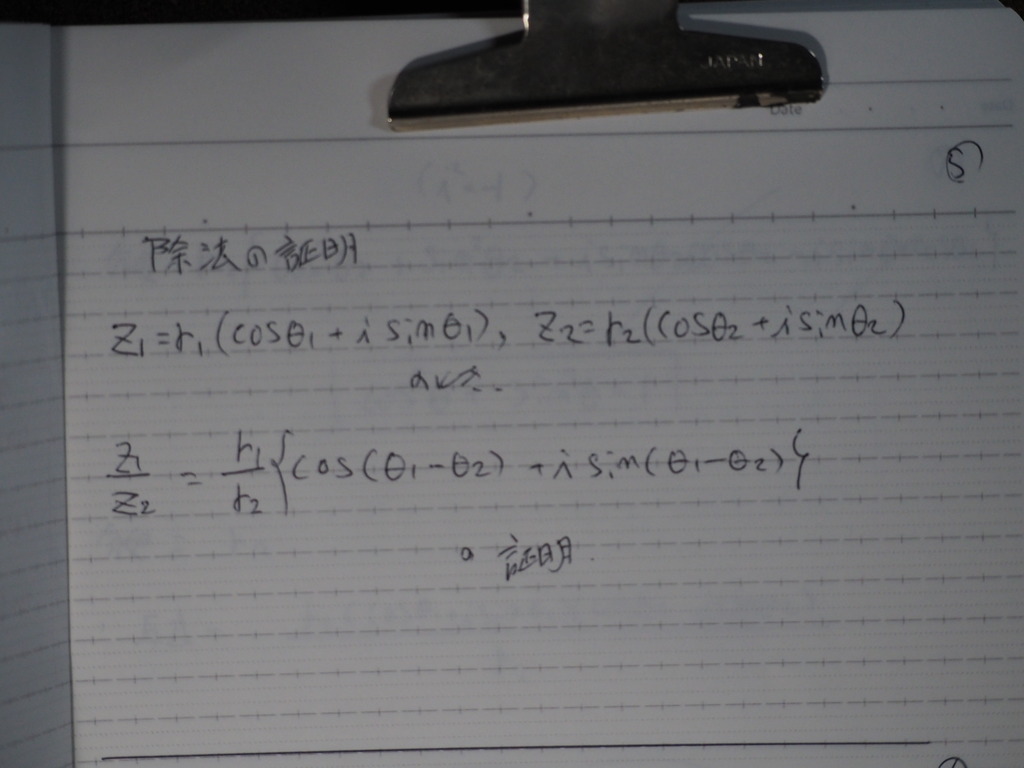 JAPAN
Date
⑤
除法の証明
Z1=r1(cosθ1+i sinθ1), Z2=r2(cosθ2+i sinθ2)
のとき.
Z1/Z2 = r1/r2 {cos(θ1-θ2)+i sin(θ1-θ2)}
の証明.